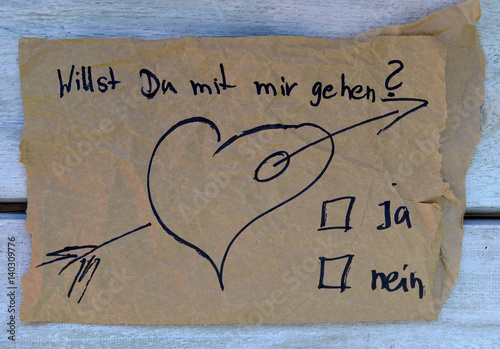 Willst Du mit mir gehen?
ja
nein
Adobe Stock | #140309776